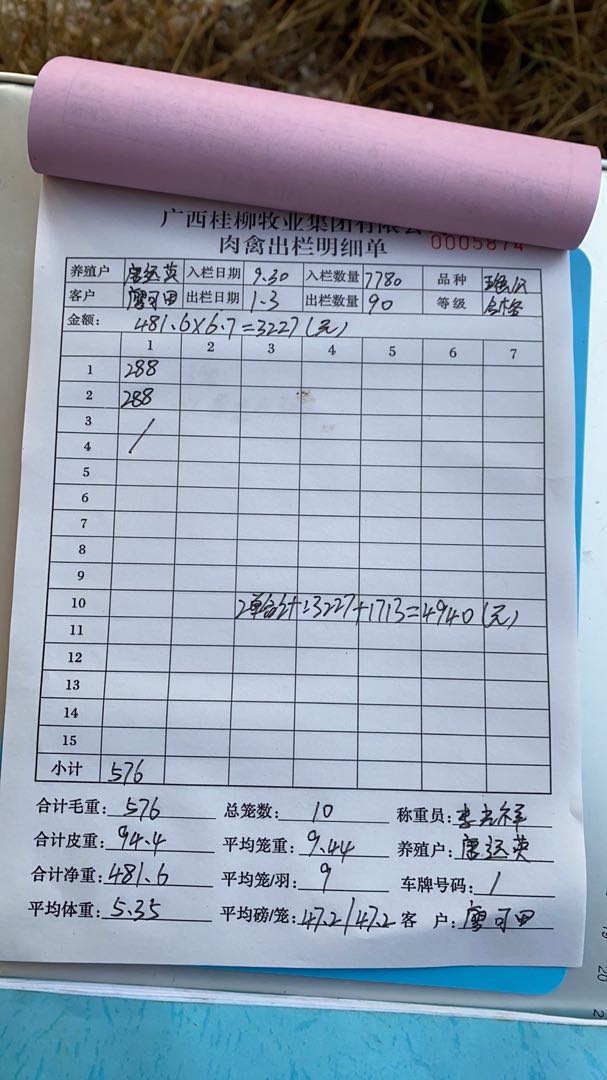 广西桂柳牧业集团有限公
肉禽出栏明细单 0005874
养殖户 唐运英 入栏日期 9.30 入栏数量 7780 品种
客户 廖可田 出栏日期 1.3 出栏数量 90 等级
金额: 481.6×6.7=3227(元)
1 2 3 4 5 6 7
1 288
2 288
3
4 /
5
6
7
8
9
10 2单合计:3227+1713=4940(元)
11
12
13
14
15
小计 576
合计毛重: 576 总笼数: 10 称重员:
合计皮重: 94.4 平均笼重: 9.44 养殖户: 唐运英
合计净重: 481.6 平均笼/羽: 9 车牌号码: /
平均体重: 5.35 平均磅/笼: 47.2/47.2 客 户: 廖可田